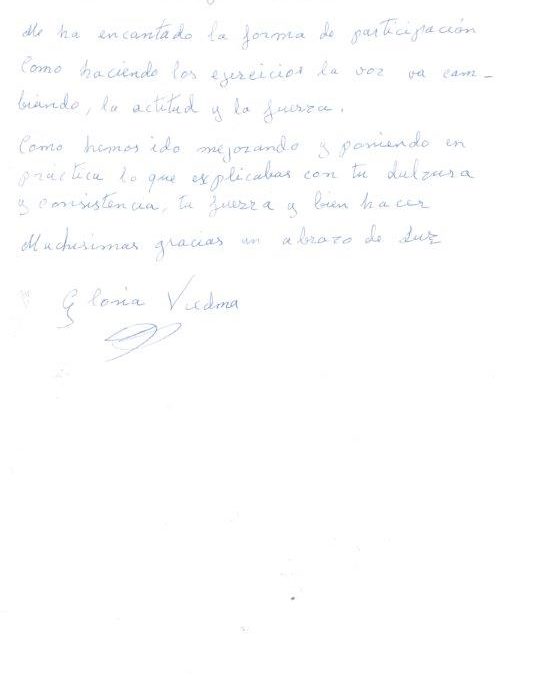 Me ha encantado la forma de participación
Como haciendo los ejercicios la voz va cam-
biando, la actitud y la fuerza.
Como hemos ido mejorando y poniendo en
práctica lo que explicabas con tu dulzura
y consistencia, tu fuerza y bien hacer
Muchisimas gracias un abrazo de luz
Gloria Viedma